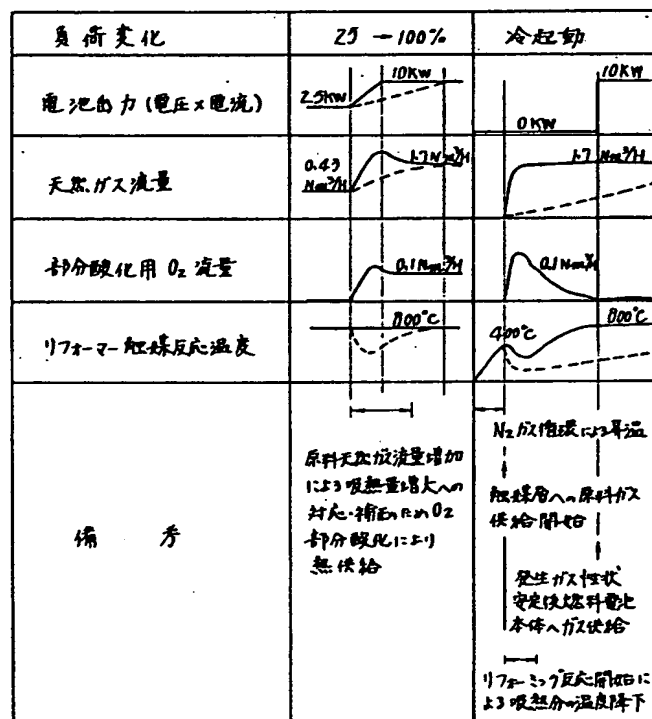 負荷変化
25→100%
冷起動
電池出力(電圧×電流)
2.5KW
10KW
0KW
10KW
天然ガス流量
0.43
Nm³/H
1.7Nm³/H
1.7 Nm³/H
部分酸化用 O₂ 流量
0.1Nm³/H
0.1Nm³/H
リフォーマー触媒反応温度
800℃
400℃
800℃
備考
原料天然ガス流量増加
による吸熱量増大への
対応・補正のためO₂
部分酸化により
熱供給
N₂ガス循環による昇温
触媒層への原料ガス
供給開始
発生ガス性状
安定後燃料電池
本体へガス供給
リフォーミング反応開始に
よる吸熱分の温度降下